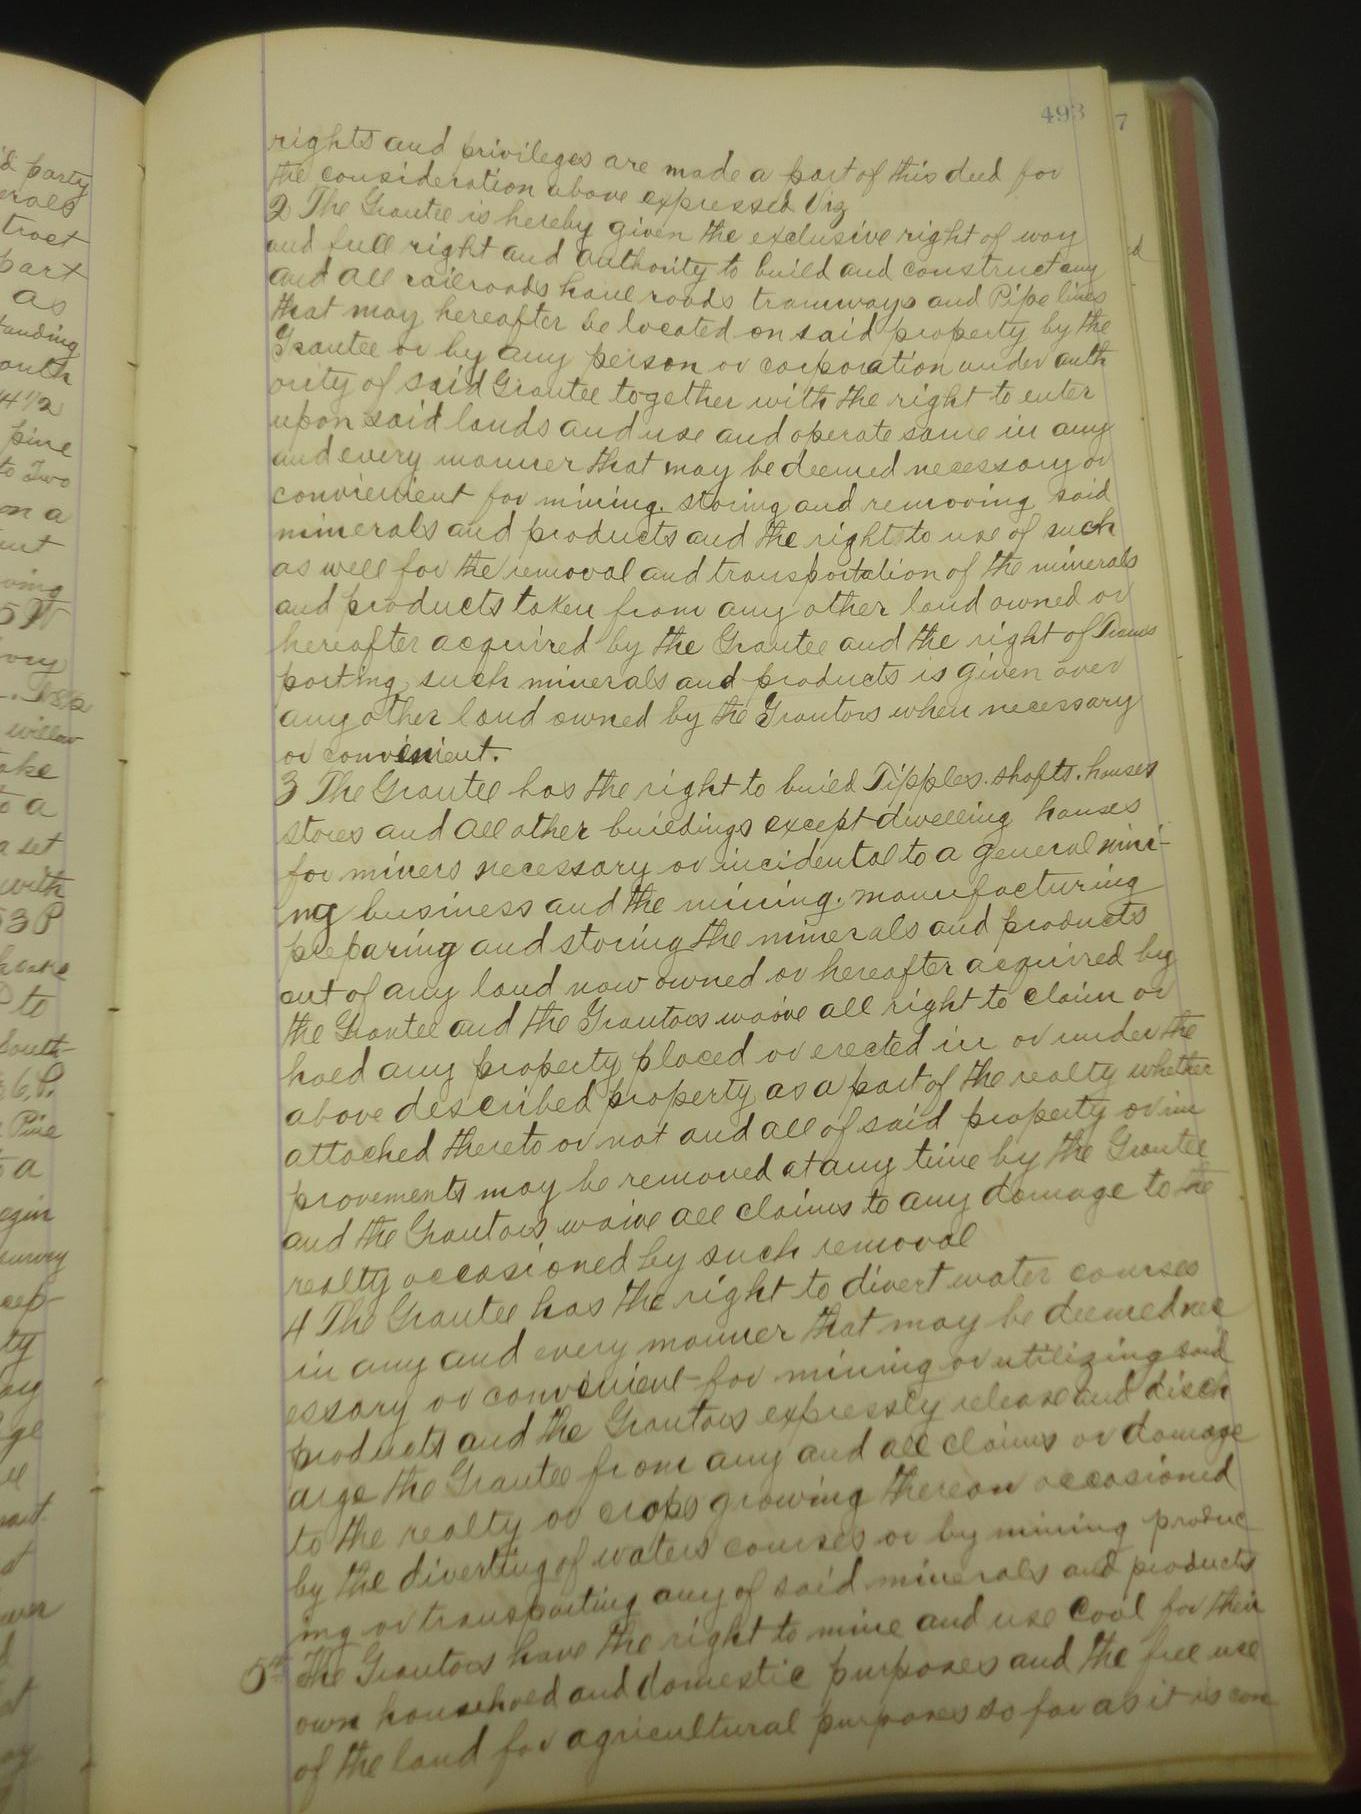 493
7
rights and privileges are made a part of this deed for
the consideration above expressed Viz
2 The Grantee is hereby given the exclusive right of way
and full right and authority to build and construct any
and all railroads haul roads tramways and Pipe lines
that may hereafter be located on said property by the
Grantee or by any person or corporation under auth
ority of said Grantee together with the right to enter
upon said lands and use and operate same in any
and every manner that may be deemed necessary or
convienient for mining. storing and removing said
minerals and products and the right to use of such
as well for the removal and transportation of the minerals
and products taken from any other land owned or
hereafter acquired by the Grantee and the right of Trans
porting such minerals and products is given over
any other land owned by the Grantors when necessary
or convenient.
3 The Grantee has the right to build Tipples. shafts. houses
stores and all other buildings except dwelling houses
for miners necessary or incidental to a general mini-
ng business and the mining. manufacturing
preparing and storing the minerals and products
out of any land now owned or hereafter acquired by
the Grantee and the Grantors waive all right to claim or
hold any property placed or erected in or under the
above described property as a part of the realty whether
attached thereto or not and all of said property or im
provements may be removed at any time by the Grantee
and the Grantors waive all claims to any damage to the
realty occasioned by such removal
4 The Grantee has the right to divert water courses
in any and every manner that may be deemed nec
essary or convenient for mining or utilizing said
products and the Grantors expressly release and disch
arge the Grantee from any and all claims or damage
to the realty or crops growing thereon occasioned
by the diverting of waters courses or by mining produc
ing or transporting any of said minerals and products
5th The Grantors have the right to mine and use Coal for their
own household and domestic purposes and the free use
of the land for agricultural purposes so far as it is con
party
tract
part
as
tanding
outh
pine
to Two
on a
oving
with
53 P
to
South
Pine
to a
egin
survey